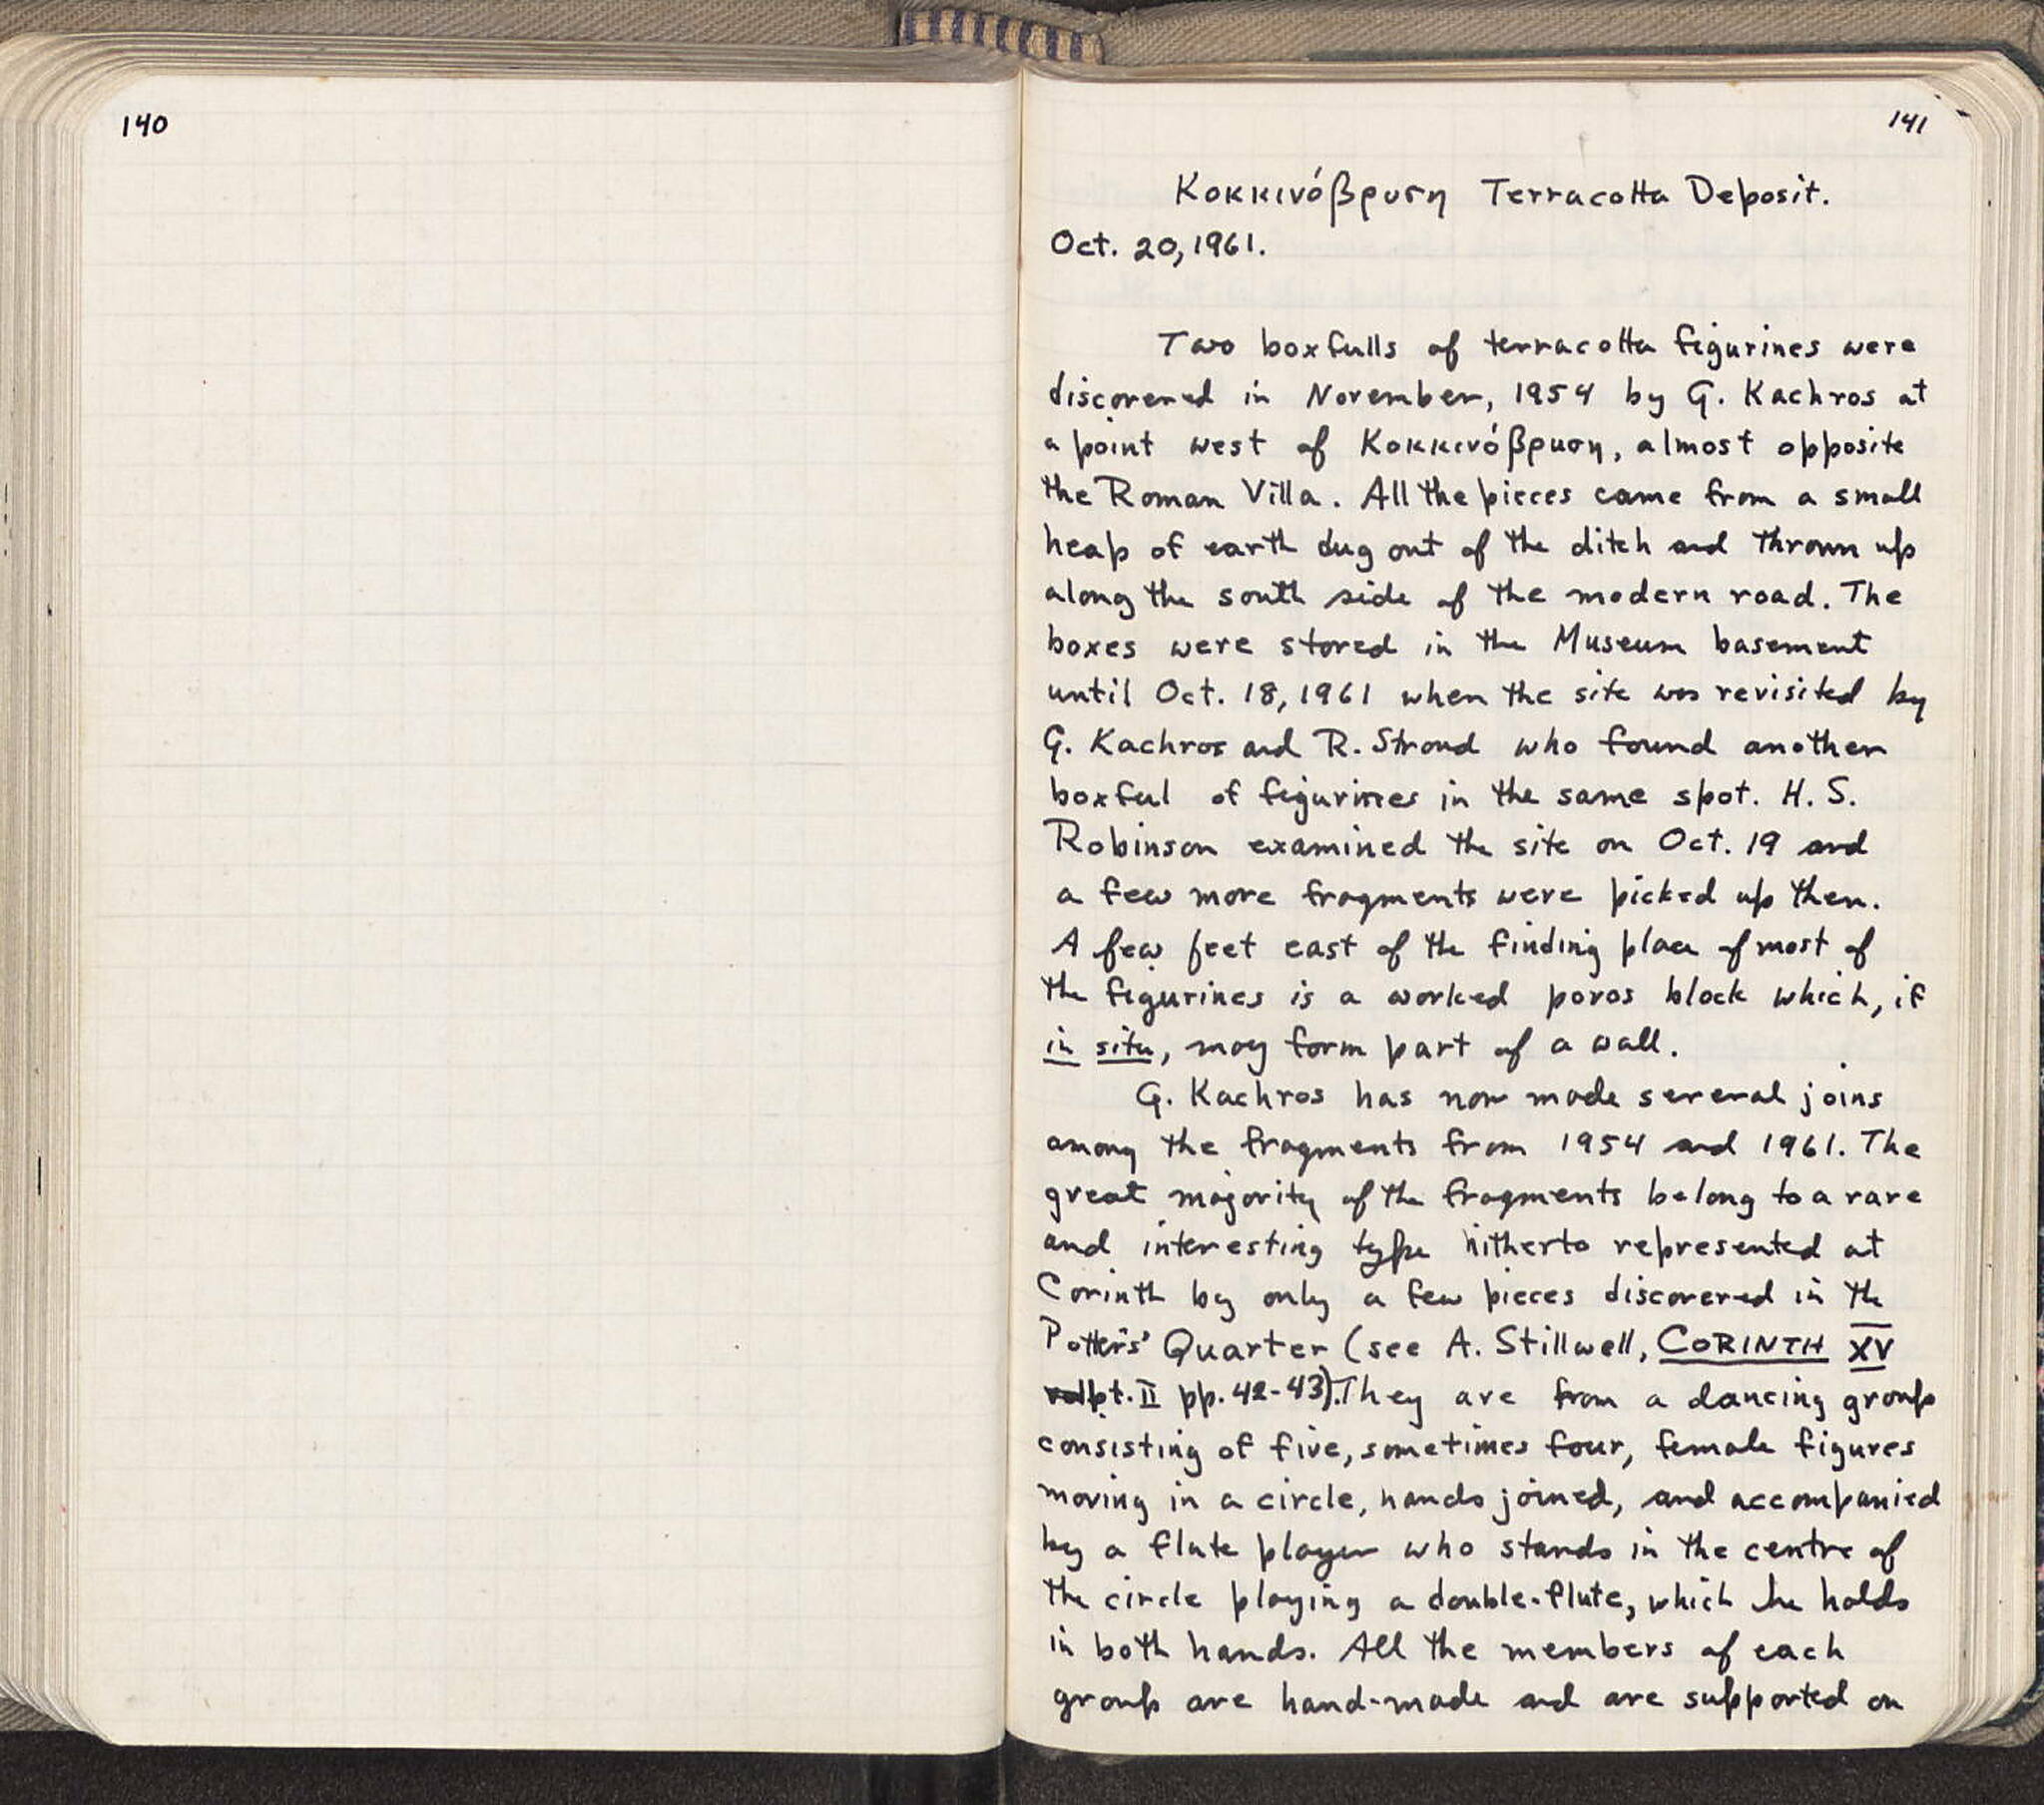 140
141
Κοκκινόβρυση Terracotta Deposit.
Oct. 20, 1961.
Two boxfulls of terracotta figurines were
discovered in November, 1954 by G. Kachros at
a point west of Κοκκινόβρυση, almost opposite
the Roman Villa. All the pieces came from a small
heap of earth dug out of the ditch and thrown up
along the south side of the modern road. The
boxes were stored in the Museum basement
until Oct. 18, 1961 when the site was revisited by
G. Kachros and R. Stroud who found another
boxful of figurines in the same spot. H. S.
Robinson examined the site on Oct. 19 and
a few more fragments were picked up then.
A few feet east of the finding place of most of
the figurines is a worked poros block which, if
in situ, may form part of a wall.
G. Kachros has now made several joins
among the fragments from 1954 and 1961. The
great majority of the fragments belong to a rare
and interesting type hitherto represented at
Corinth by only a few pieces discovered in the
Potters' Quarter (see A. Stillwell, CORINTH XV
pt. II pp. 42-43). They are from a dancing group
consisting of five, sometimes four, female figures
moving in a circle, hands joined, and accompanied
by a flute player who stands in the centre of
the circle playing a double-flute, which he holds
in both hands. All the members of each
group are hand-made and are supported on